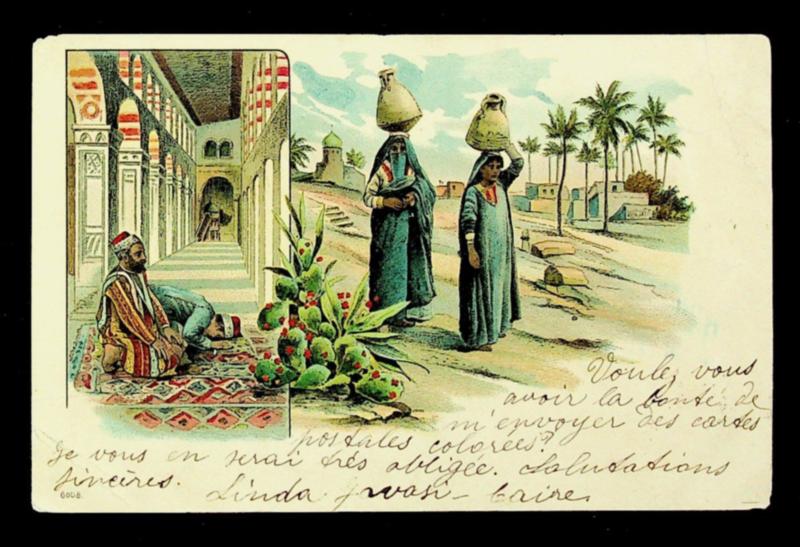 Voulez vous
avoir la bonté de
m'envoyer des cartes
postales colorées?
Je vous en serai très obligée. Salutations
sincères.
Linda - Caire.
6008.